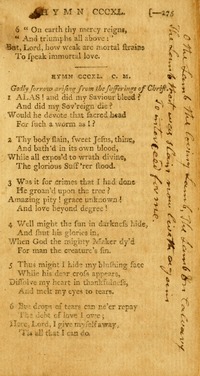 HYMN CCCXL. [—276
6 "On earth thy mercy reigns,
"And triumphs all above:"
But, Lord, how weak are mortal strains
To speak immortal love.
HYMN CCCXL. C. M.
Godly sorrow arising from the sufferings of Christ.
1 ALAS! and did my Saviour bleed?
And did my Sov'reign die?
Would he devote that sacred head
For such a worm as I?
2 Thy body slain, sweet Jesus, thine,
And bath'd in its own blood,
While all expos'd to wrath divine,
The glorious Suff'rer stood.
3 Was it for crimes that I had done
He groan'd upon the tree?
Amazing pity! grace unknown!
And love beyond degree!
4 Well might the sun in darkness hide,
And shut his glories in,
When God the mighty Maker dy'd
For man the creature's sin.
5 Thus might I hide my blushing face
While his dear cross appears,
Dissolve my heart in thankfulness,
And melt my eyes to tears.
6 But drops of tears can ne'er repay
The debt of love I owe;
Here, Lord, I give myself away,
'Tis all that I can do.
O the Lamb the loving Lamb, the Lamb on Calvary
The Lamb that was slain now liveth again
To intercede for me